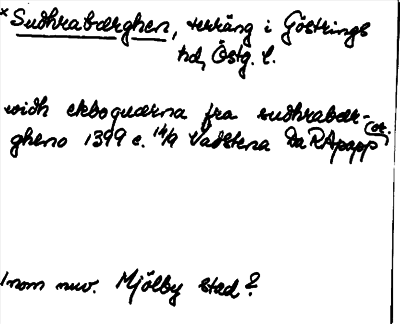 × Sudhrabærghen, terräng i Göstrings
hd, Östg. l.
widh ekboquærna fra sudhrabær-
gheno 1399 e. 14/9 Vadstena Da RApapp (or.
Inom nuv. Mjölby stad?